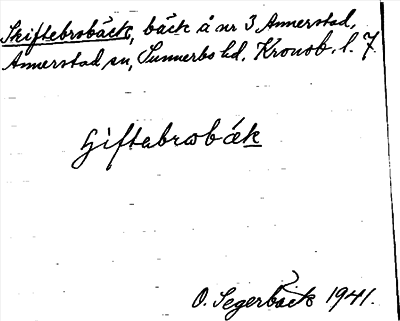 Skiftebrobäck, bäck å nr 3 Annerstad,
Annerstad sn, Sunnerbo hd. Kronob. l. 7
Giftabrobäk
O. Segerbäck 1941.